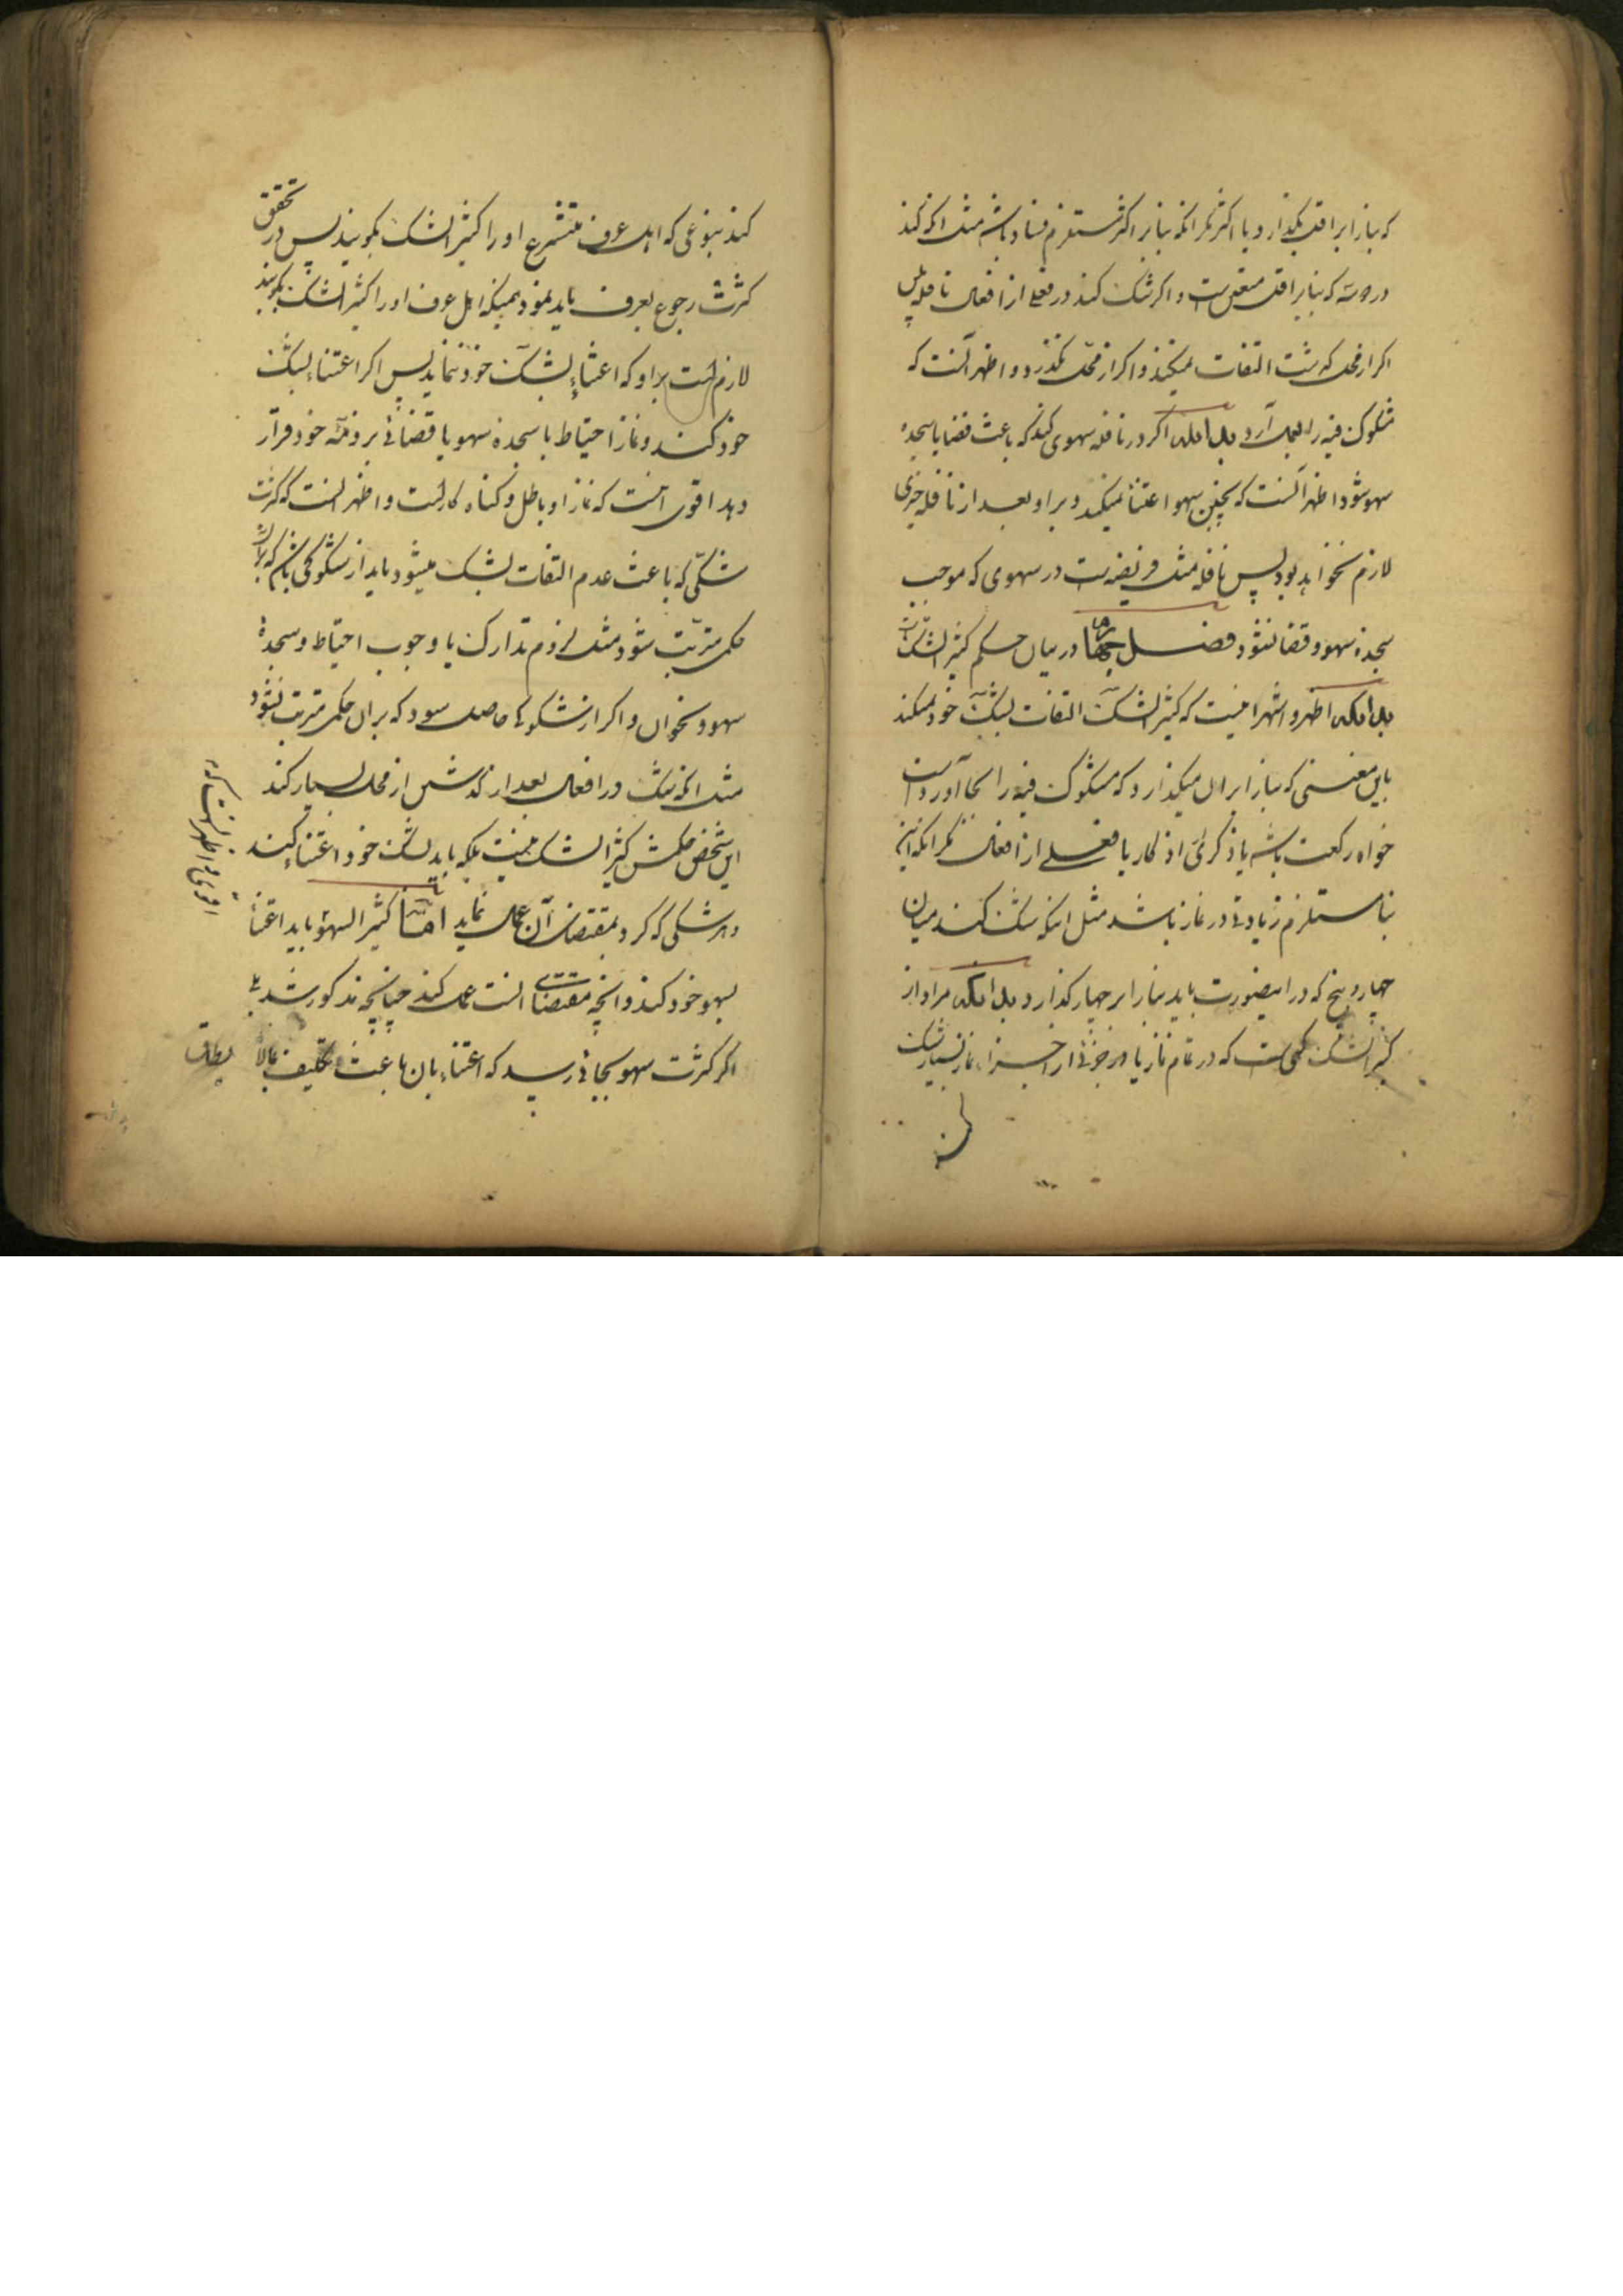 که بنا را بر اقل بگذارد یا اکثر مگر آنکه بنا بر اکثر مستلزم فساد باشد مثل آنکه شک کند
در دو و سه که بنا بر اقل متعین است و اگر شک کند در فعلی از افعال نافله پس
اگر از محل گذشت التفات نمیکند و اگر از محل نگذرد و اظهر آنست که
مشکوک فیه را بعمل آرد بدانکه اگر در نافله سهوی کند که باعث قضا یا سجده
سهو شود اظهر آنست که بچنین سهو اعتنا نمیکند و بر او بعد از نافله چیزی
لازم نخواهد بود پس نافله مثل فریضه نیست در سهوی که موجب
سجده سهو و قضا نشود فصل در بیان حکم کثیر الشک
بدانکه اظهر و اشهر اینست که کثیر الشک التفات بشک خود نمیکند
باین معنی که بنا را بر آن میگذارد که مشکوک فیه را بجا آورده است
خواه رکعت باشد یا ذکری از اذکار یا فعلی از افعال مگر آنکه این
بنا مستلزم زیادتی در نماز باشد مثل اینکه شک کند میان
چهار و پنج که در اینصورت باید بنا را بر چهار گذارد بدانکه مراد از
کثیر الشک کسی است که در تمام نماز یا در جزئی از اجزاء نماز بسیار شک
کند بنوعی که اهل عرف متشرع او را کثیر الشک بگویند پس در تحقق
کثرت رجوع بعرف باید نمود همینکه اهل عرف او را کثیر الشک بگویند
لازم است بر او که اعتناء بشک خود ننماید پس اگر اعتناء بشک
خود کند و نماز احتیاط یا سجده سهو یا قضائی بر ذمه خود قرار
دهد اقوی آنست که نماز او باطل و گناه کار است و اظهر آنست که کثرت
شکی که باعث عدم التفات بشک میشود باید از شکوکی باشد که بر آن
حکمی مترتب شود مثل لزوم تدارک یا وجوب احتیاط و سجدهٔ
سهو و نحو آن و اگر از شکوکی حاصل شود که بر آن حکمی مترتب نشود
مثل آنکه شک در افعال بعد از گذشتن از محل بسیار کند
این شخص حکمش کثیر الشک نیست بلکه باید بشک خود اعتناء کند
و هر شکی که کرد بمقتضای آن عمل نماید اما کثیر السهو باید اعتنا
بسهو خود کند و آنچه مقتضای آنست عمل کند چنانچه مذکور شد بلی
اگر کثرت سهو بجائی رسید که اعتناء بآن باعث تکلیف مالا
یطاق
اقوی و اظهر آنست که